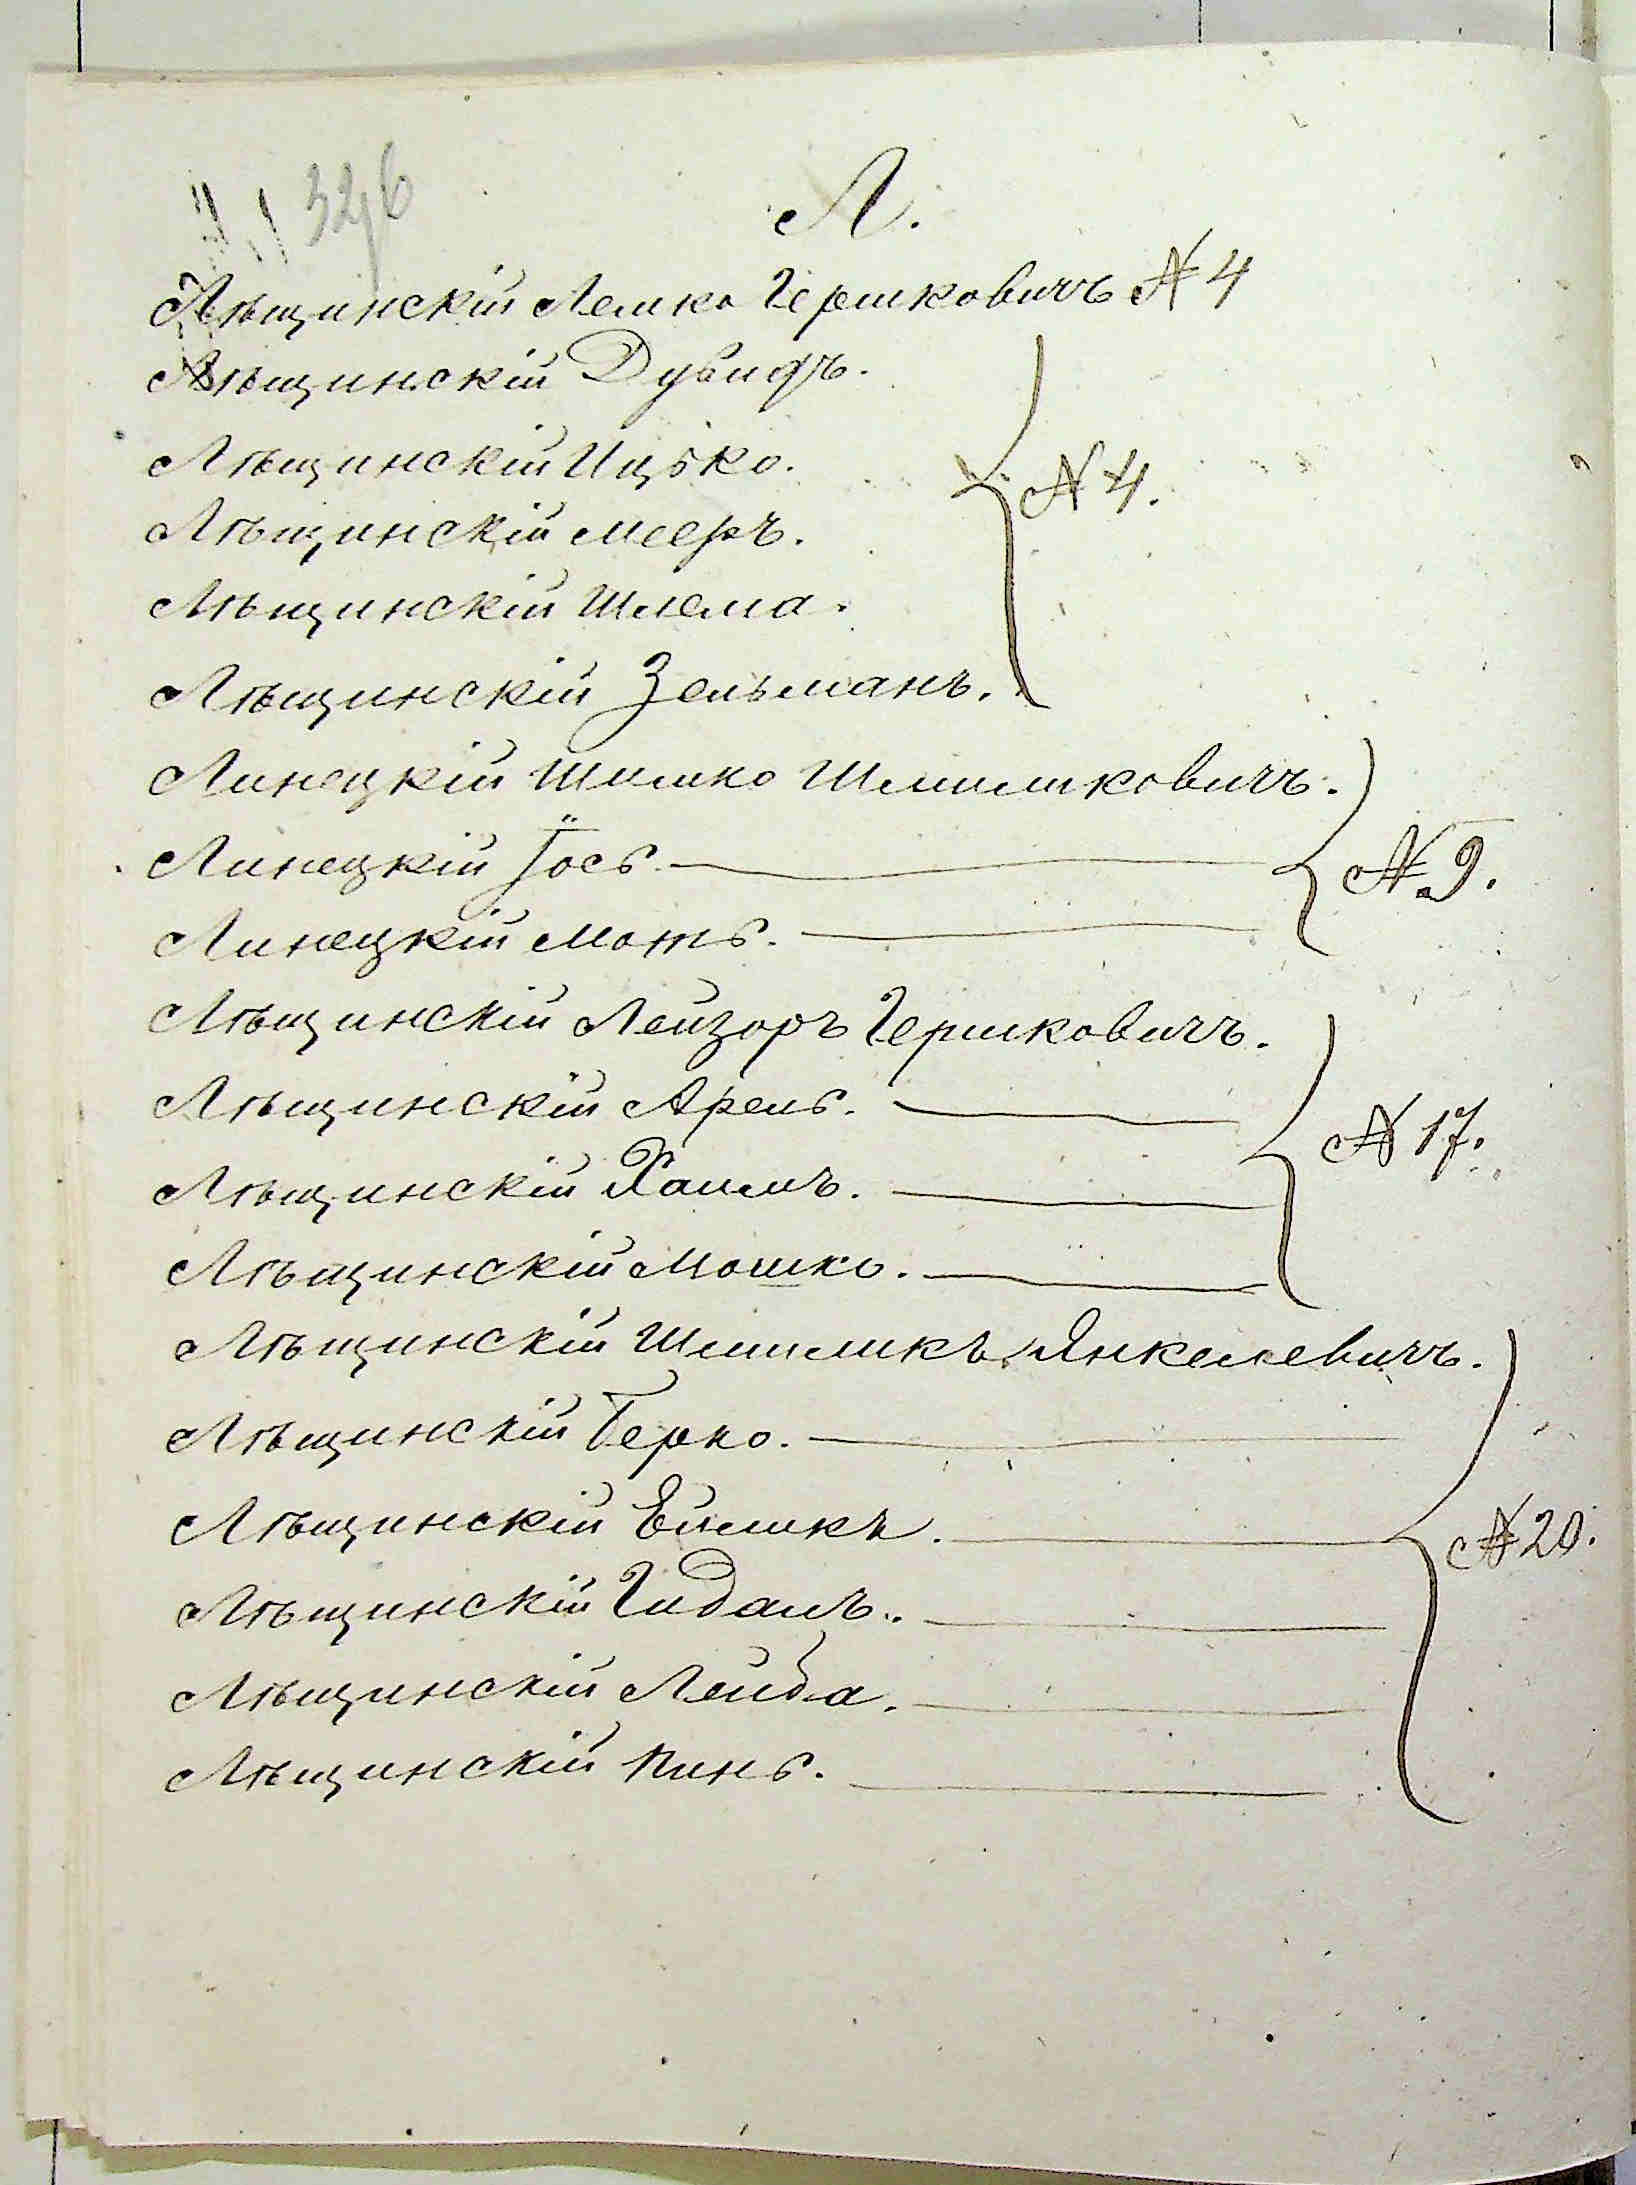 326
Л.
Лѣщинскій Лемко Гершковичъ № 4
Лѣщинскій Дувидъ.
Лѣщинскій Ицько.
№ 4.
Лѣщинскій Мееръ.
Лѣщинскій Шлема.
Лѣщинскій Зельманъ.
Линецкій Шимко Шлимковичъ.
Линецкій Іось.
№ 9.
Линецкій Моть.
Лѣщинскій Лейзоръ Гершковичъ.
Лѣщинскій Арель.
№ 17.
Лѣщинскій Хаимъ.
Лѣщинскій Мошко.
Лѣщинскій Янкелевичъ.
Лѣщинскій Берко.
Лѣщинскій
№ 20.
Лѣщинскій Гидаль.
Лѣщинскій Лейба.
Лѣщинскій Пинь.